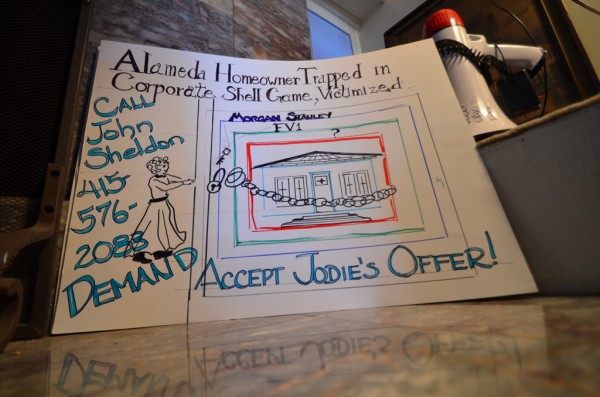 Alameda Homeowner Trapped in
Corporate Shell Game, Victimized
CALL
John
Sheldon
415-
576-
2083
DEMAND
MORGAN STANLEY
EV1
?
ACCEPT JODIE'S OFFER!